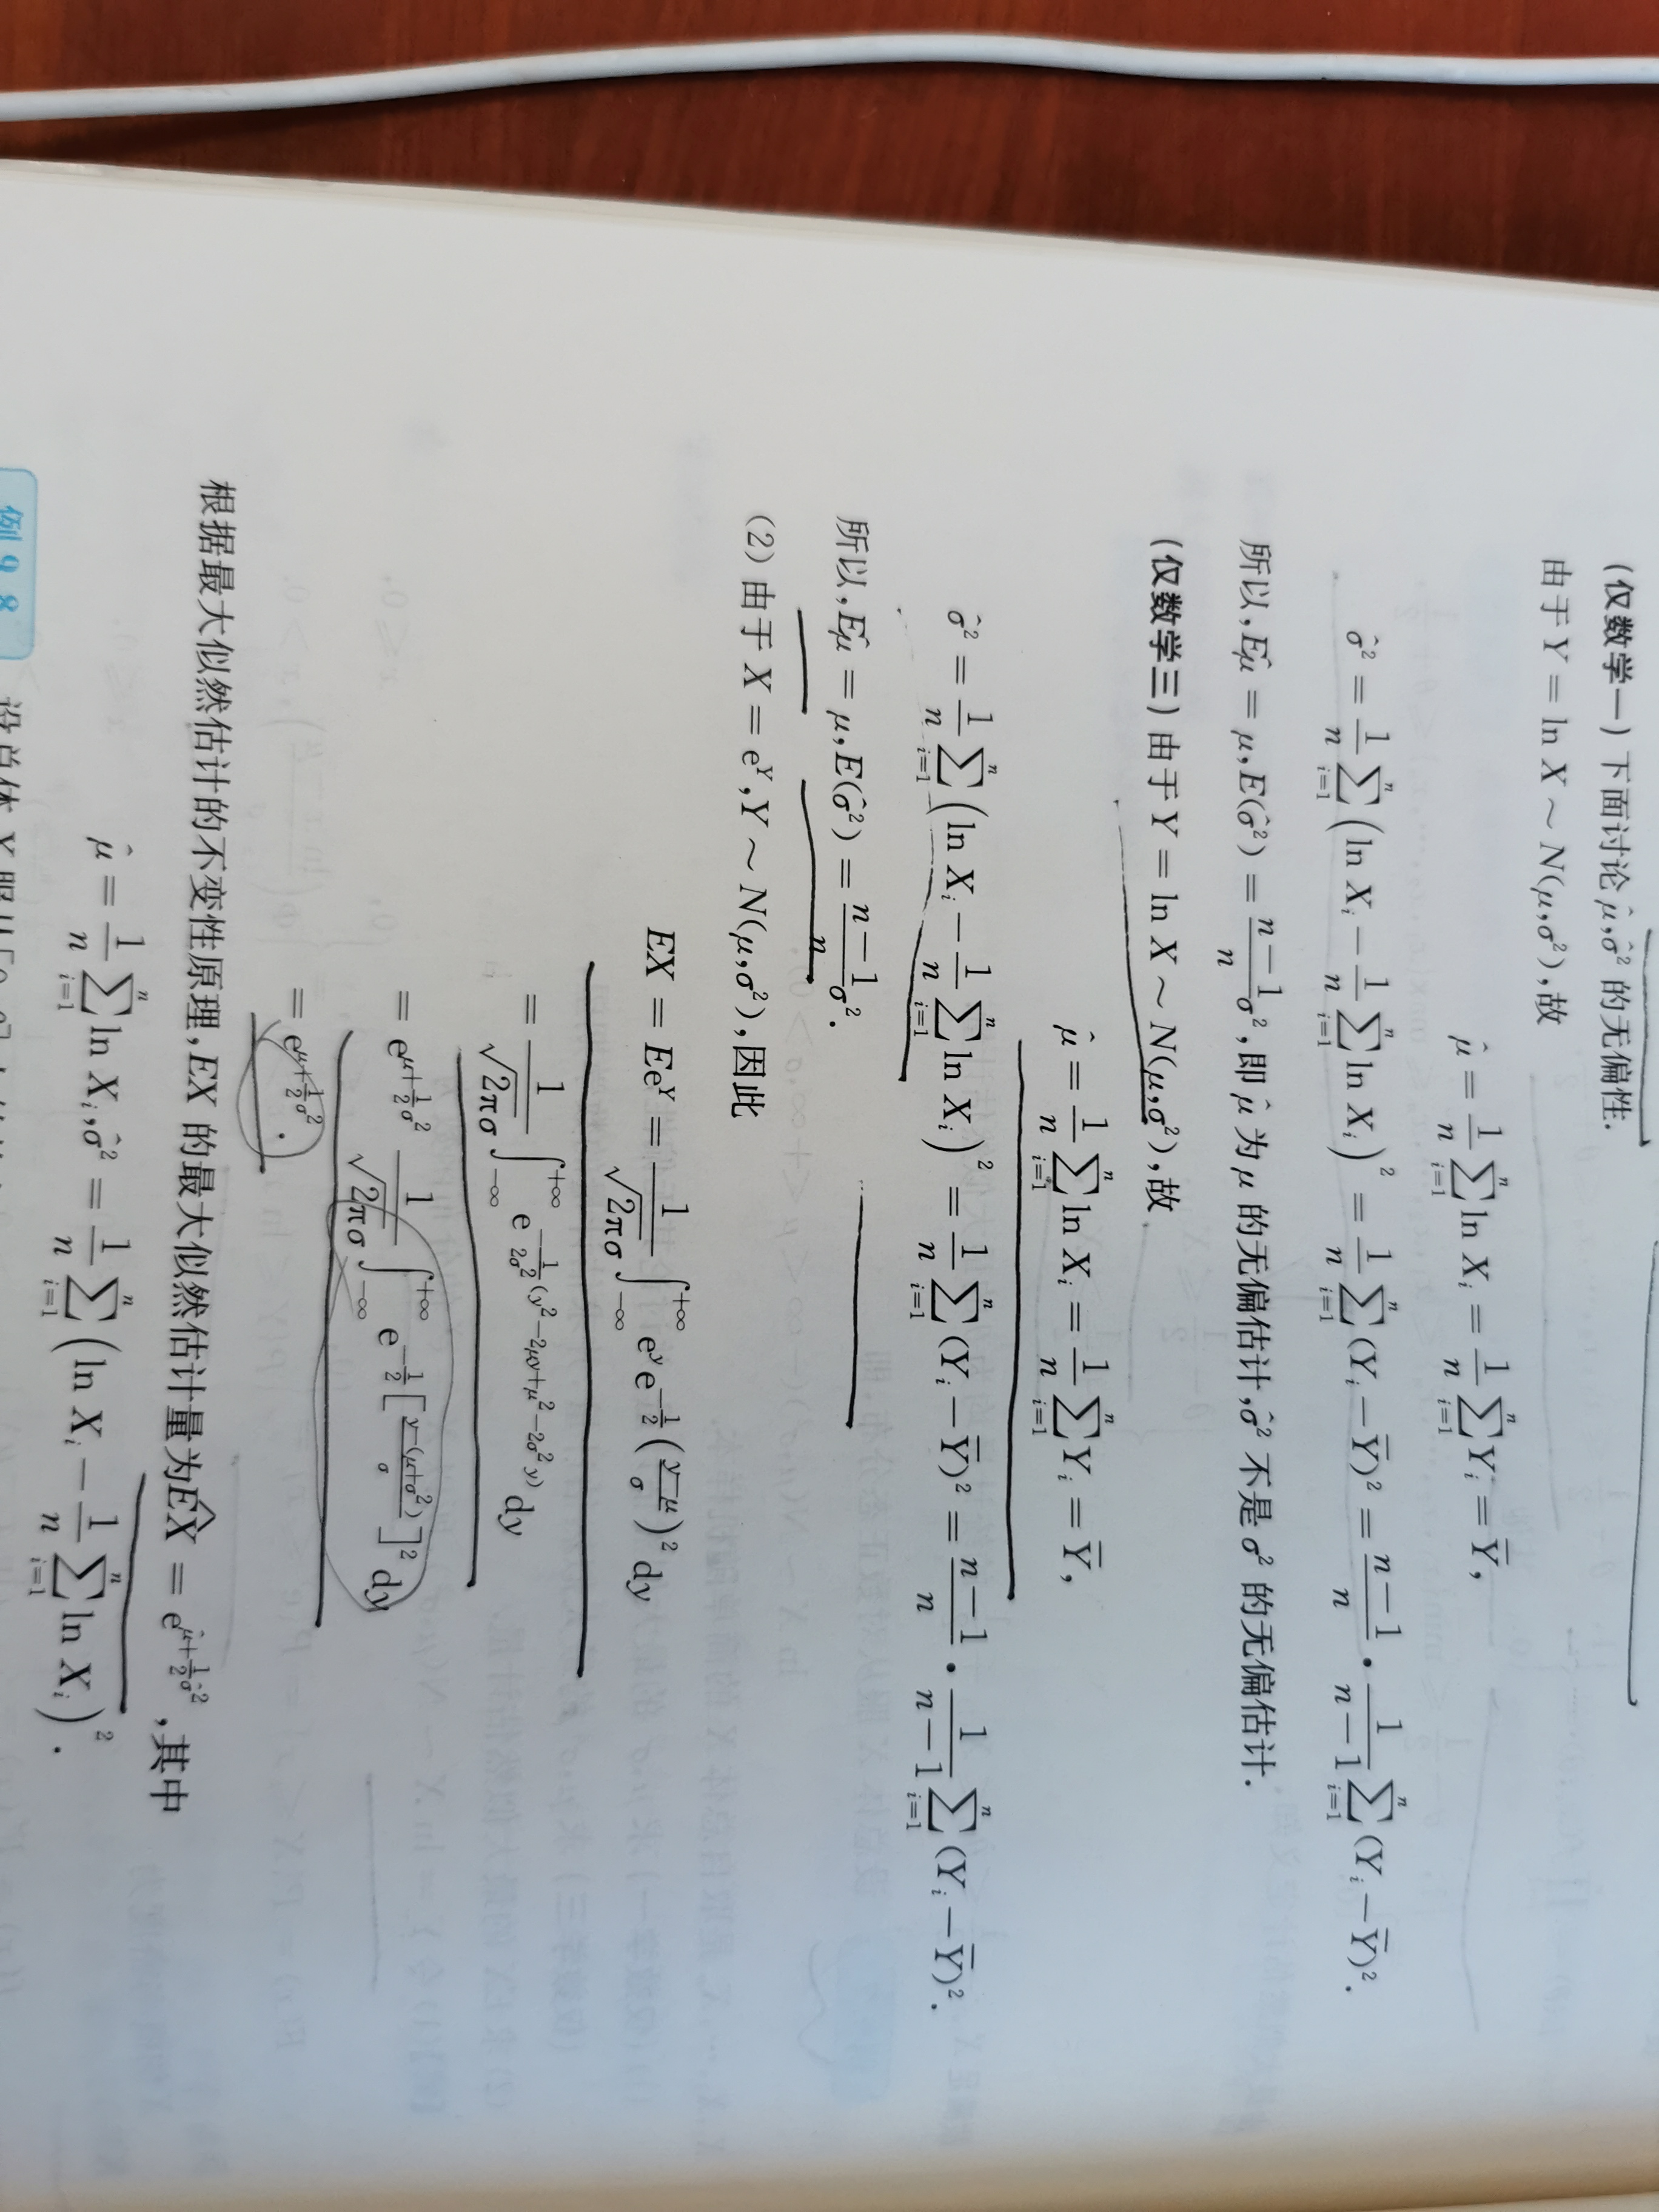 (仅数学一)下面讨论 μ̂,σ̂² 的无偏性.
由于 Y = ln X ~ N(μ,σ²),故
μ̂ = 1/n ∑_{i=1}^{n} ln X_i = 1/n ∑_{i=1}^{n} Y_i = Ȳ,
σ̂² = 1/n ∑_{i=1}^{n} (ln X_i − 1/n ∑_{i=1}^{n} ln X_i)² = 1/n ∑_{i=1}^{n} (Y_i − Ȳ)² = (n−1)/n · 1/(n−1) ∑_{i=1}^{n} (Y_i − Ȳ)².
所以,Eμ̂ = μ,E(σ̂²) = (n−1)/n σ²,即 μ̂ 为 μ 的无偏估计,σ̂² 不是 σ² 的无偏估计.
(仅数学三)由于 Y = ln X ~ N(μ,σ²),故
μ̂ = 1/n ∑_{i=1}^{n} ln X_i = 1/n ∑_{i=1}^{n} Y_i = Ȳ,
σ̂² = 1/n ∑_{i=1}^{n} (ln X_i − 1/n ∑_{i=1}^{n} ln X_i)² = 1/n ∑_{i=1}^{n} (Y_i − Ȳ)² = (n−1)/n · 1/(n−1) ∑_{i=1}^{n} (Y_i − Ȳ)².
所以,Eμ̂ = μ,E(σ̂²) = (n−1)/n σ².
(2) 由于 X = e^Y,Y ~ N(μ,σ²),因此
EX = Ee^Y = 1/(√2π σ) ∫_{−∞}^{+∞} e^y e^{−1/2 ((y−μ)/σ)²} dy
= 1/(√2π σ) ∫_{−∞}^{+∞} e^{−1/(2σ²) (y²−2μy+μ²−2σ²y)} dy
= e^{μ+1/2 σ²} 1/(√2π σ) ∫_{−∞}^{+∞} e^{−1/2 [(y−(μ+σ²))/σ]²} dy
= e^{μ+1/2 σ²}.
根据最大似然估计的不变性原理,EX 的最大似然估计量为 ÊX = e^{μ̂+1/2 σ̂²},其中
μ̂ = 1/n ∑_{i=1}^{n} ln X_i,σ̂² = 1/n ∑_{i=1}^{n} (ln X_i − 1/n ∑_{i=1}^{n} ln X_i)².
例 9.8 设总体 X 服从